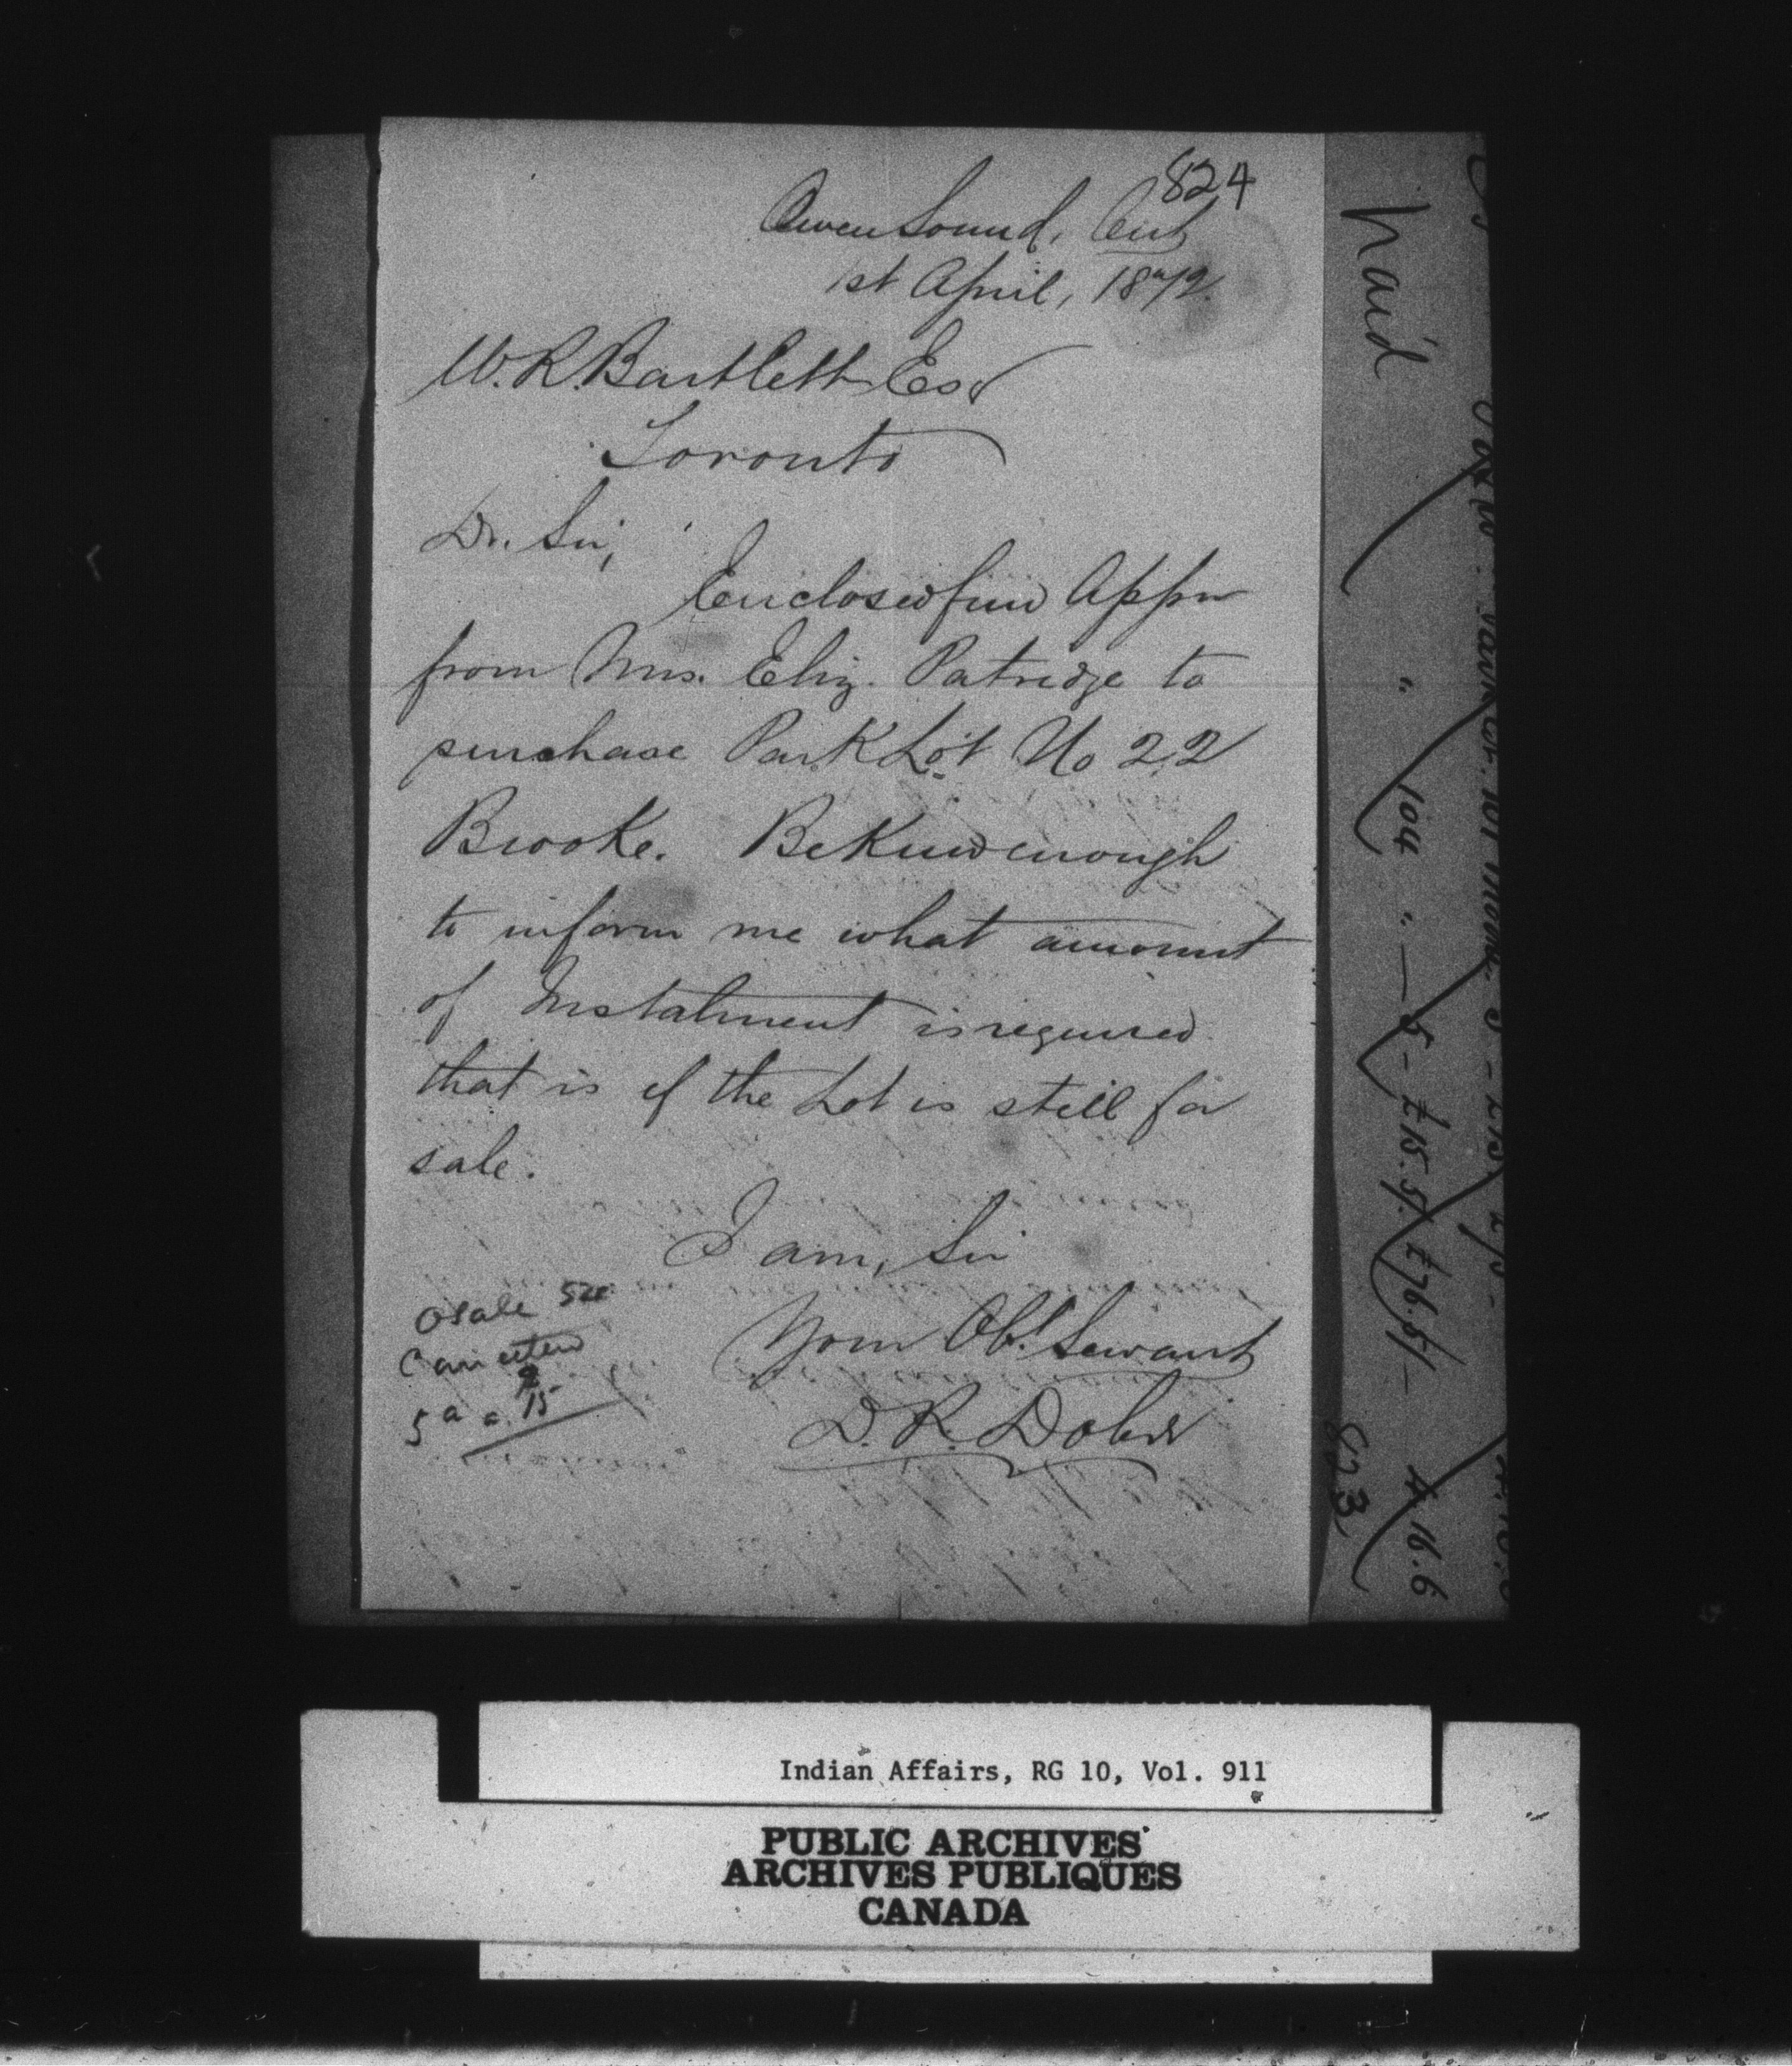 824
Owen Sound, Ont
1st April, 1872.
W. R. Bartlett Esq
Toronto
Dr. Sir,
Enclosed find Appn
from Mrs. Eliz. Patridge to
purchase Park Lot No 22
Brooke. Be Kind enough
to inform me what amount
of Instalment is required
that is if the Lot is still for
sale.
I am, Sir
Your Obt. Servant
D. R. Dobie
sale
5 a 15
Paid
" 104 " — 5 - £15.5/. £76.5/- 4.16.6
823
Indian Affairs, RG 10, Vol. 911
PUBLIC ARCHIVES
ARCHIVES PUBLIQUES
CANADA